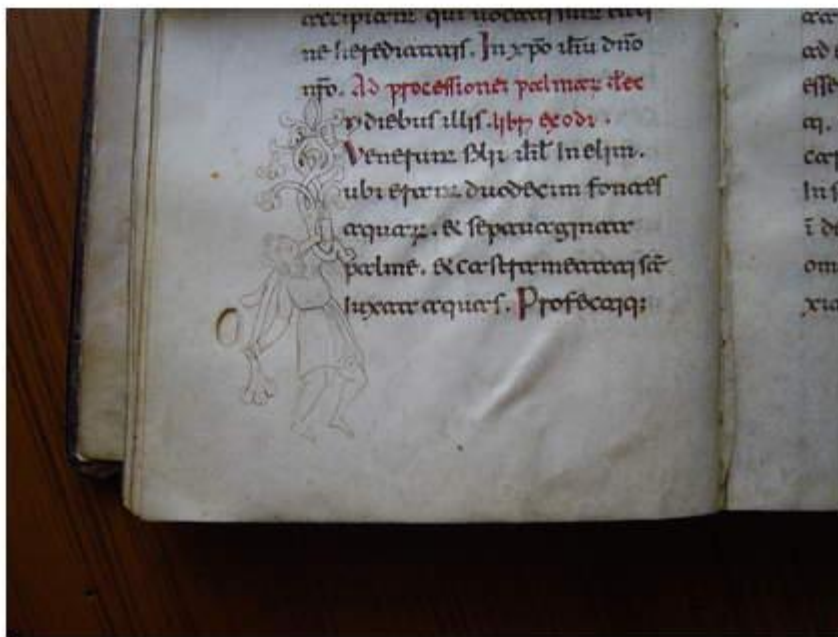 accipiant qui uocati sunt eter
ne hereditatis. In xpo ihu dno
nro. Ad processione palmar lec
n diebus illis. libri exodi.
Venerunt filii isrl in elim.
ubi erant duodecim fontes
aquar. & septuaginta
palme. & castrametati st
iuxta aquas. Profectiq;
ad
esse